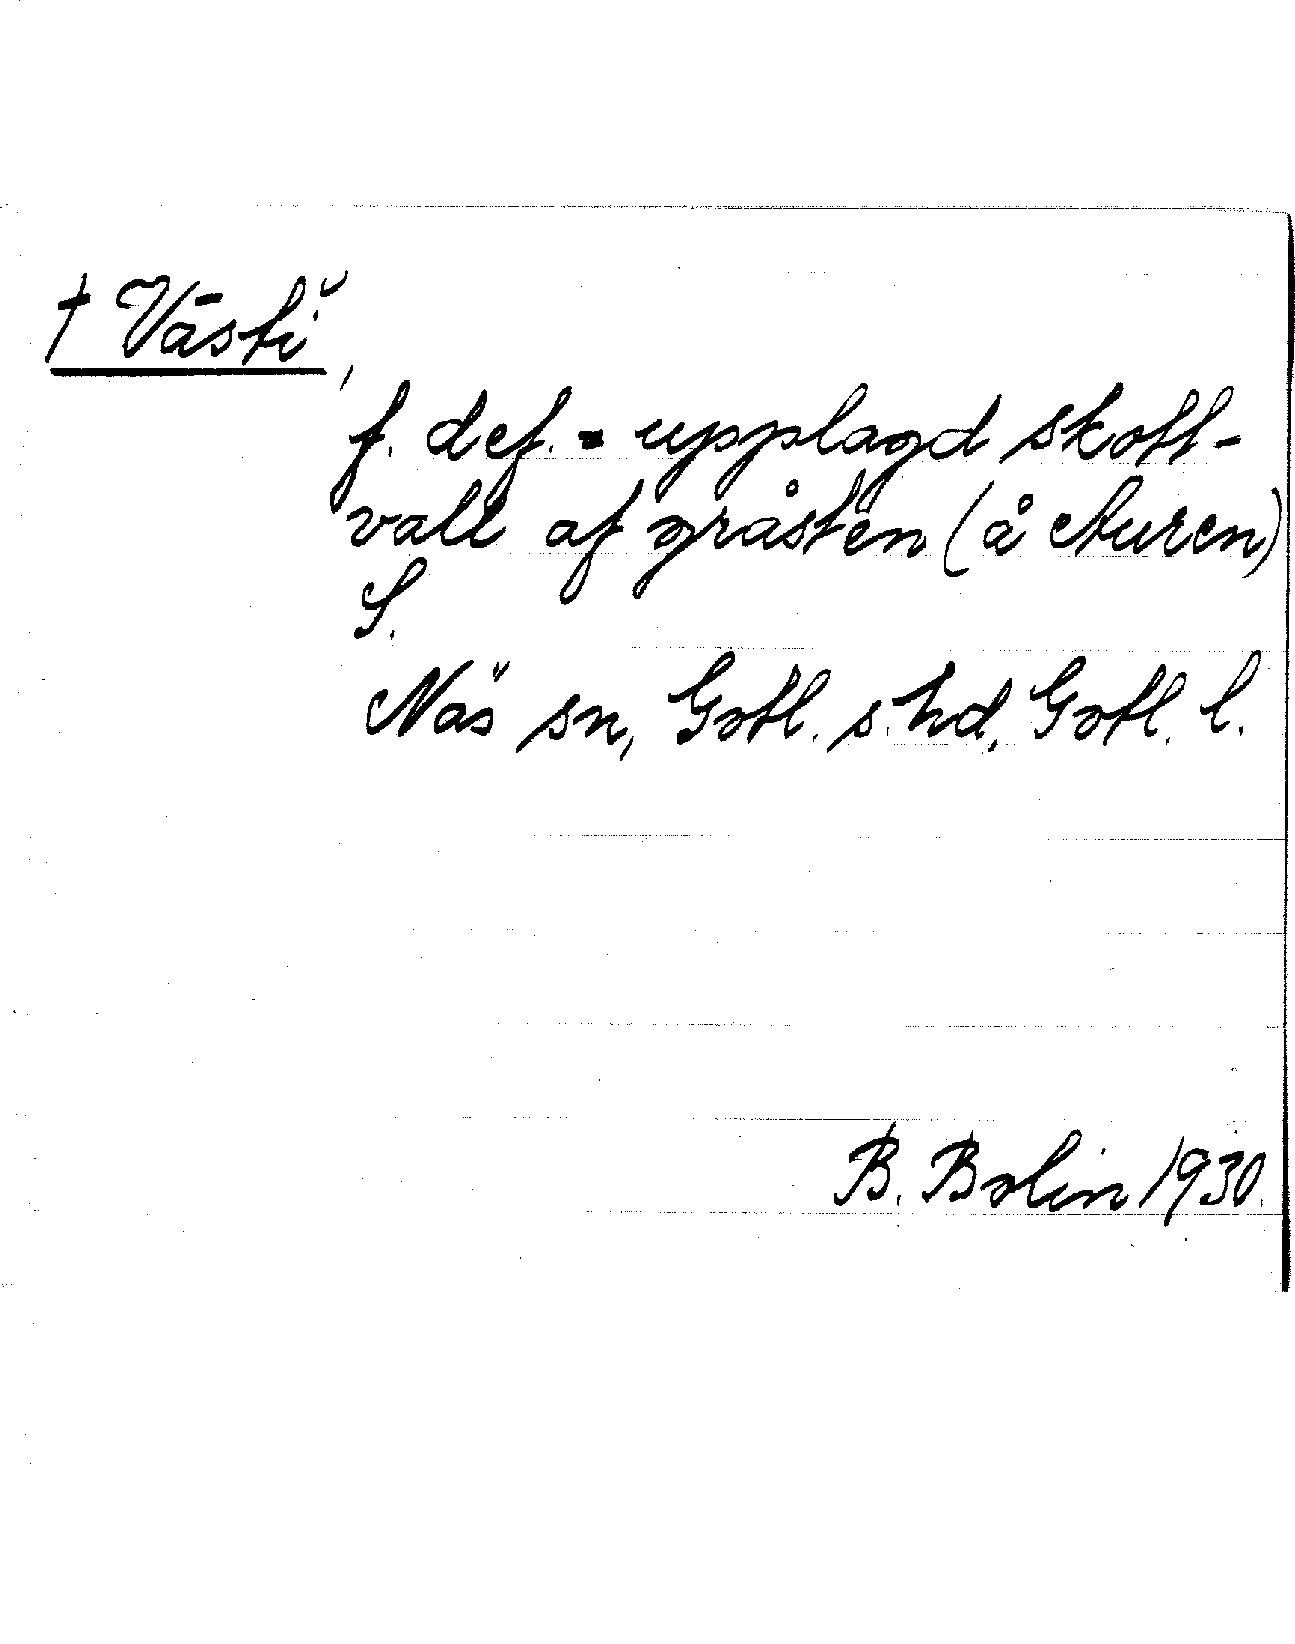 † Västi,
f. def. = upplagd skott-
vall af gråsten (å Auren)
S.
Näs sn, Gotl. s. hd, Gotl. l.
B. Bolin 1930.